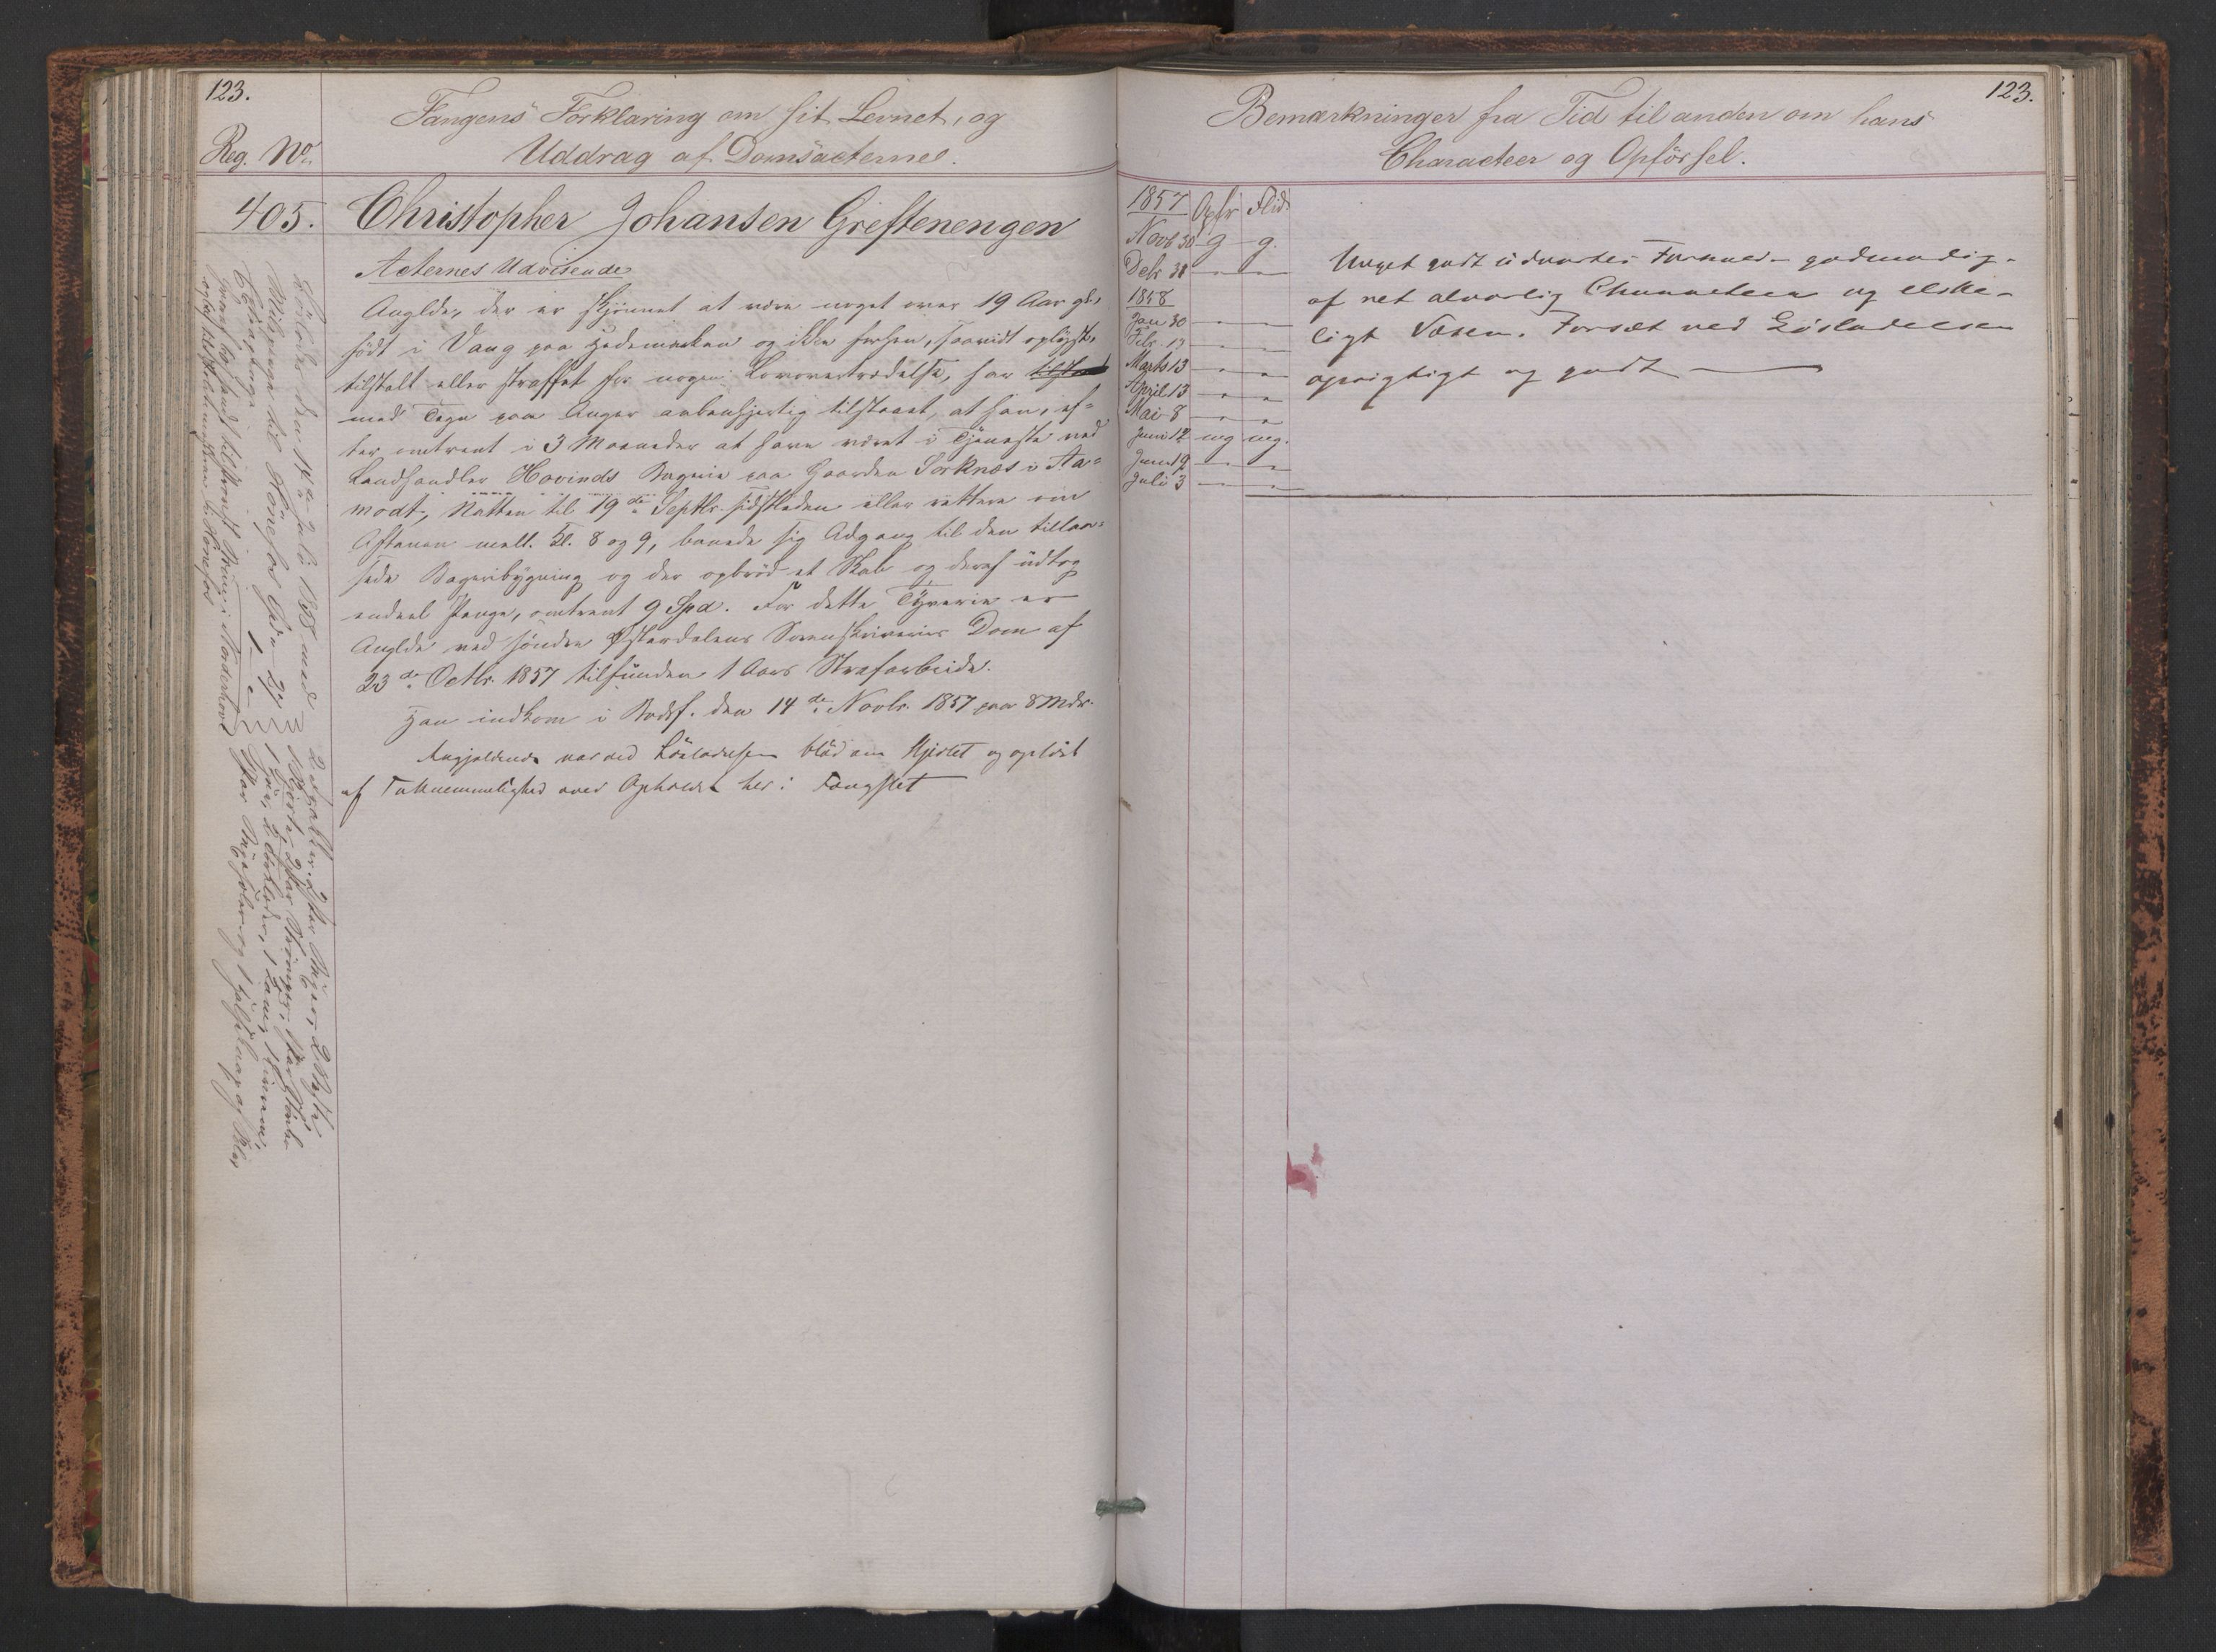 123.
Reg. No.
Fangens Forklaring om sit Levnet, og
Uddrag af Domsacterne.
405.
Christopher Johansen Greftenengen
Acternes Udvisende
Anglde, der er skjönnet at være noget over 19 Aar gl.,
födt i Vang paa Hedemarken og ikke forhen, saavidt oplyst,
tiltalt eller straffet for nogen Lovovertrædelse, har
med Tegn paa Anger aabenhjertig tilstaaet, at han, ef-
ter omtrent i 3 Maaneder at have været i Tjeneste ved
Landhandler Hovinds Bageri paa Gaarden Sorknæs i Aa-
modt, Natten til 19de Septbr. sidstleden eller rettere om
Aftenen mell. Kl. 8 og 9, banede sig Adgang til den tillaa-
sede Bageribygning og der opbröd et Skab og deraf udtog
endeel Penge, omtrent 9 Spd. For dette Tyverie er
Anglde ved söndre Østerdalens Sorenskriveries Dom af
23de Octbr. 1857 tilfunden 1 Aars Strafarbeide.
Han indkom i Bodsf. den 14de Novbr. 1857 paa 8 Mdr.
Angjældende var ved Løsladelsen blød om Hjertet og opløst
af Taknemmelighed over Opholdet her i Fængslet
Löslades den 14de Juli 1858 med
Milepenge til Hönefos
2 Par Strömper,
123.
Bemærkninger fra Tid til anden om hans
Characteer og Opförsel.
1857 Opfr Flid.
Novb 30 g g.
Debr 31 — —
1858
Jan 30 — —
Febr. 13 — —
Marts 13 — —
April 13 — —
Mai 8 — —
Juni 12 mg mg.
Juni 19 — —
Juli 3 — —
Meget godt udvortes Forhold - godmodig -
af ret alvorlig Characteer og elske-
ligt Væsen. Forsæt ved Løsladelsen
oprigtigt og godt —